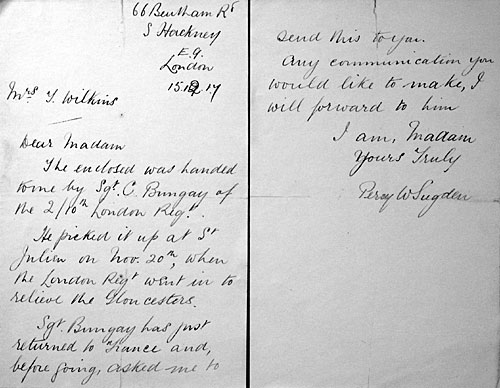 66 Bentham Rd
S Hackney
E.9.
London
15.12.17
Mrs T. Wilkins
Dear Madam
The enclosed was handed
to me by Sgt. C. Bungay of
the 2/10th London Regt.
He picked it up at St
Julien on Nov. 20th, when
the London Regt went in to
relieve the Gloucesters.
Sgt. Bungay has just
returned to France and,
before going, asked me to
send this to you.
Any communication you
would like to make, I
will forward to him
I am, Madam
Yours Truly
Percy W Sugden